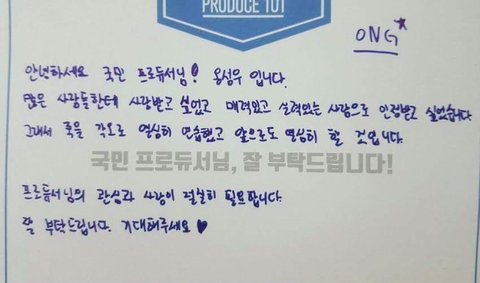 PRODUCE 101
ONG
안녕하세요 국민 프로듀서님! 옹성우 입니다.
많은 사람들한테 사랑받고 싶었고 매력있고 실력있는 사람으로 인정받고 싶었습니다.
그래서 죽을 각오로 열심히 연습했고 앞으로도 열심히 할 것입니다.
국민 프로듀서님, 잘 부탁드립니다!
프로듀서님의 관심과 사랑이 절실히 필요합니다.
잘 부탁드립니다. 기대해주세요 ♥